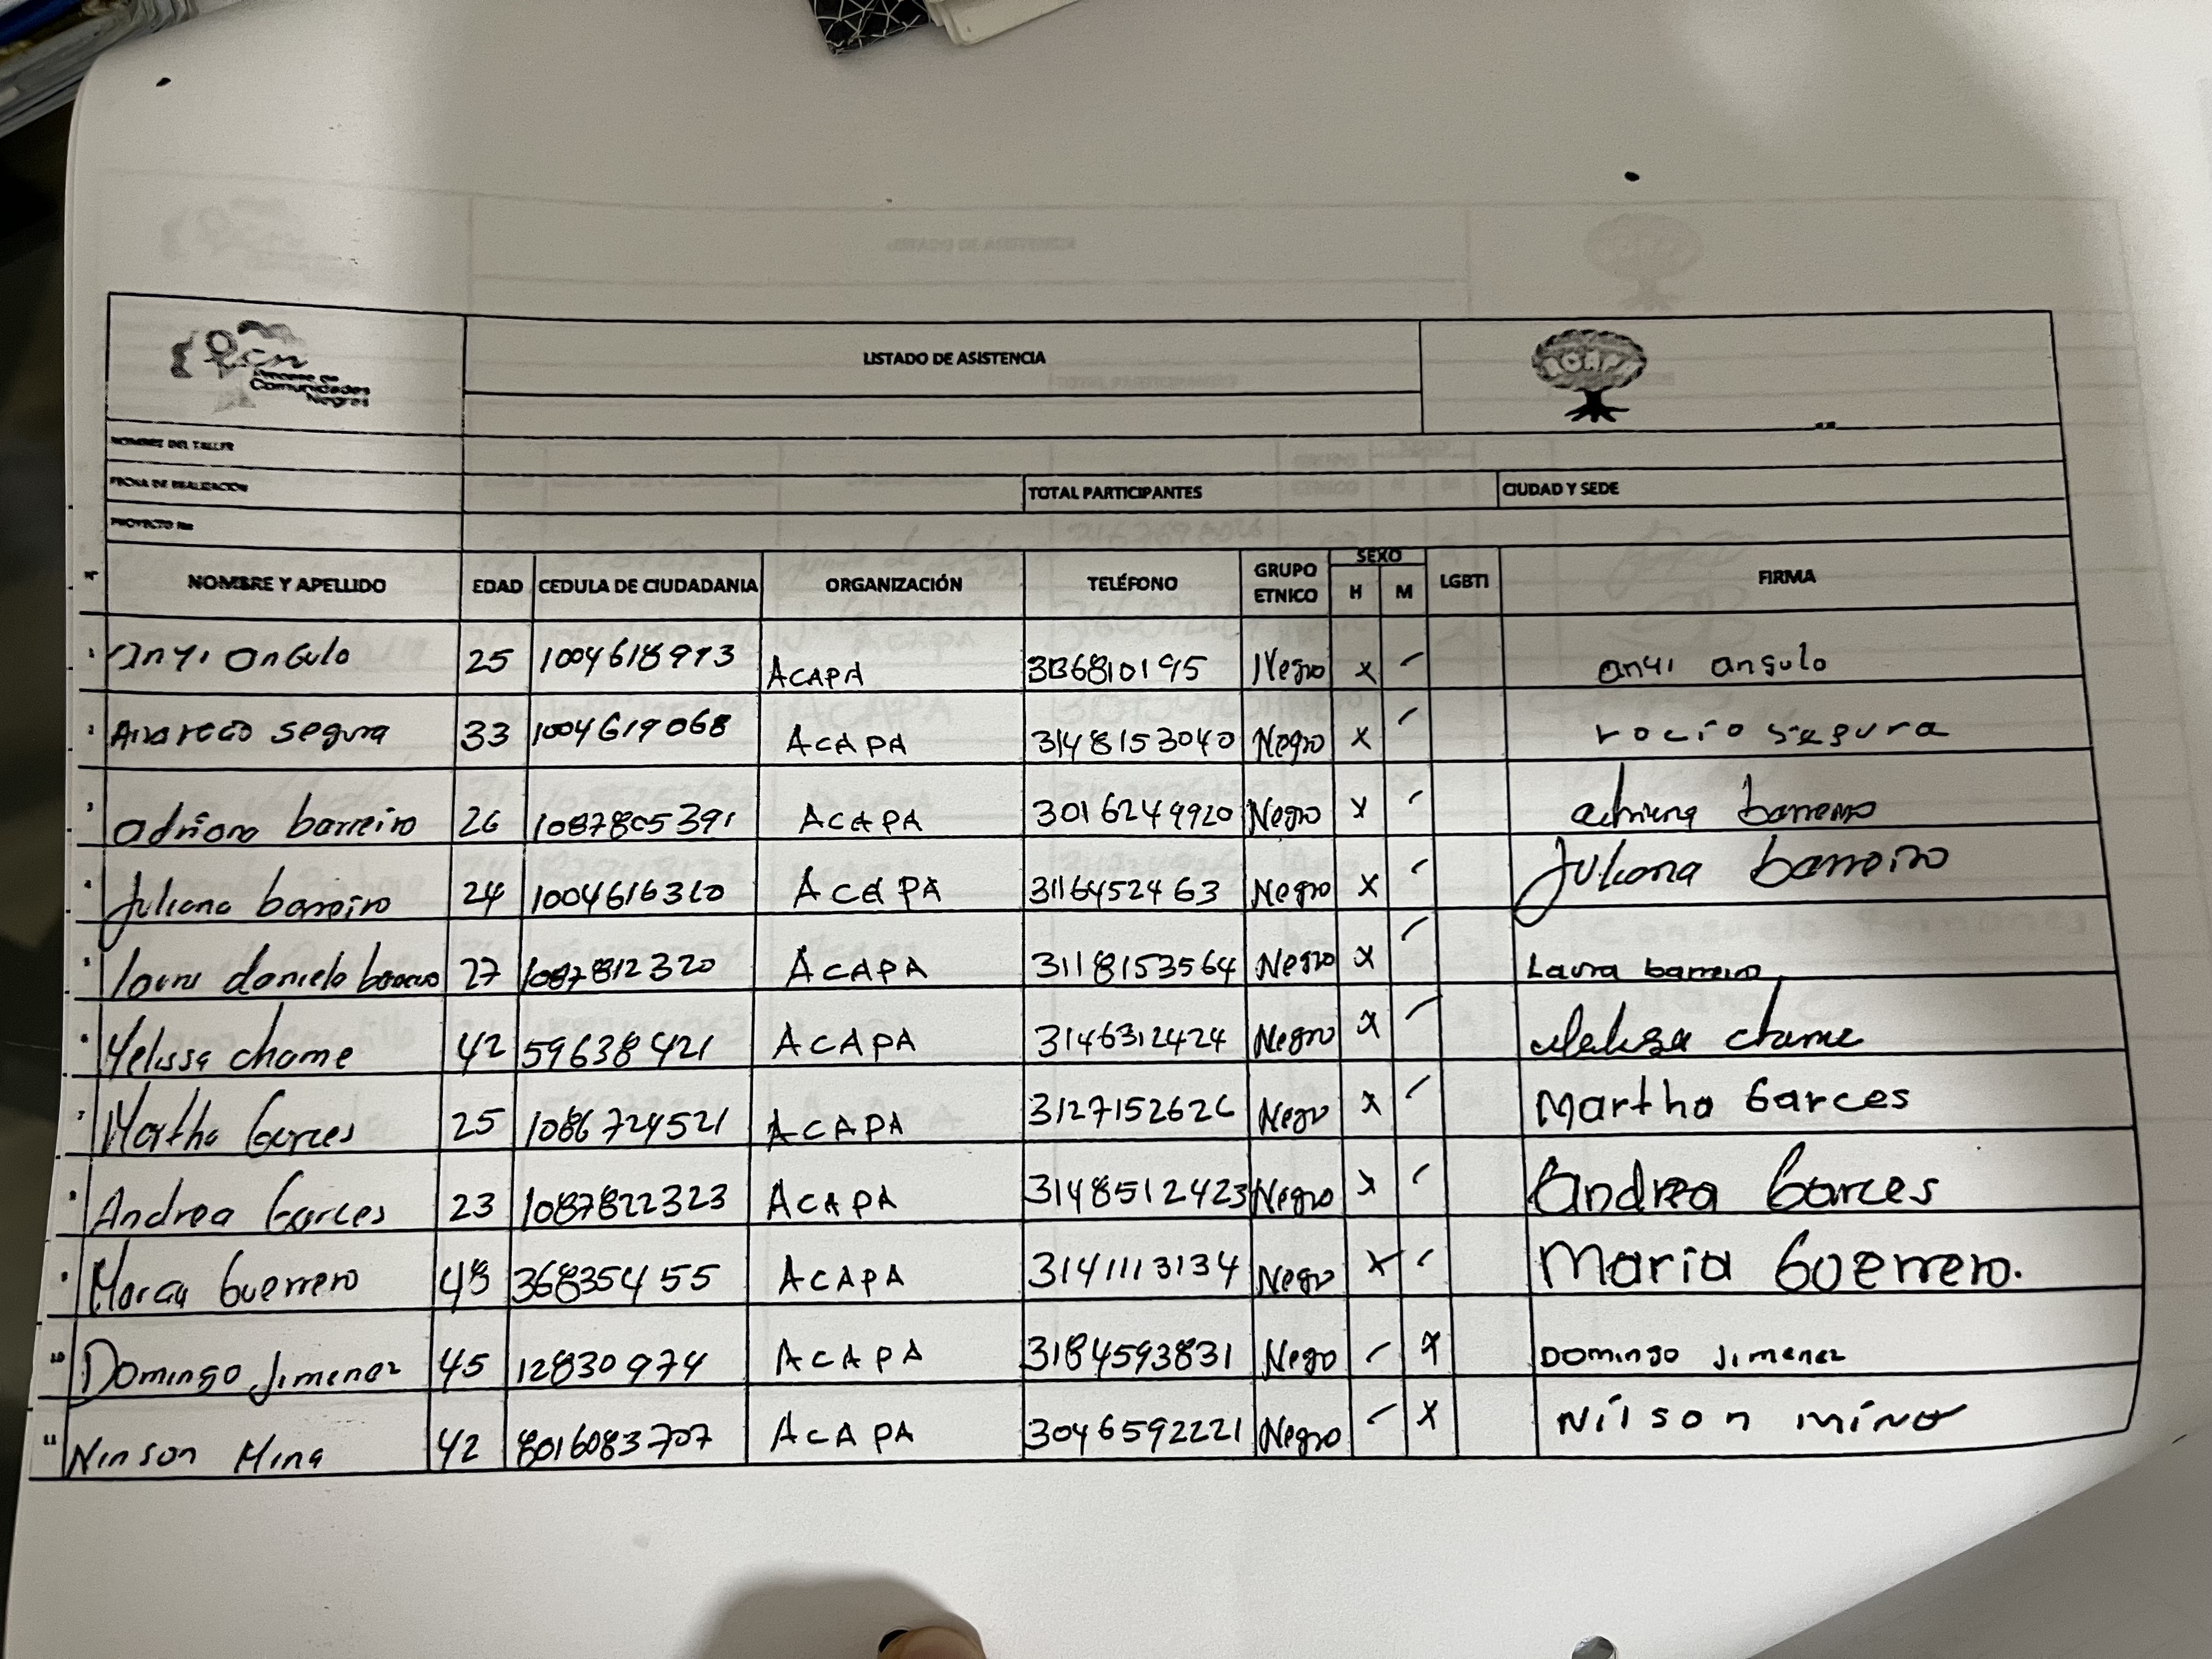 Pcn
Proceso de
Comunidades
Negras
LISTADO DE ASISTENCIA
ACAPA
NOMBRE DEL TALLER
FECHA DE REALIZACION
TOTAL PARTICIPANTES
CIUDAD Y SEDE
PROYECTO No
N° NOMBRE Y APELLIDO EDAD CEDULA DE CIUDADANIA ORGANIZACIÓN TELÉFONO GRUPO ETNICO SEXO H M LGBTI FIRMA
1 Anyi Angulo 25 1004618973 ACAPA Negro x anyi angulo
2 segura 33 1004619068 ACAPA 3148153040 Negro x rocio segura
3 adriana barreiro 26 1087805391 ACAPA 3016249920 Negro x adriana barreiro
4 Juliana barreiro 24 1004616320 ACAPA 3116452463 Negro x Juliana barreiro
5 laura daniela 27 1087812320 ACAPA 3118153564 Negro x Laura barreiro
6 Melissa chame 42 59638421 ACAPA 3146312424 Negro x Melissa chame
7 Martha Garces 25 1086724521 ACAPA 3127152626 Negro x Martha Garces
8 Andrea Garces 23 1087822323 ACAPA 3148512423 Negro x Andrea Garces
9 Guerrero 368354 55 ACAPA 3141113134 Negro x Maria Guerrero.
10 Domingo Jimenez 45 12830974 ACAPA 3184593831 Negro x Domingo Jimenez
11 Ninson Mina 42 8016083707 ACAPA 3046592221 Negro x Nilson mina